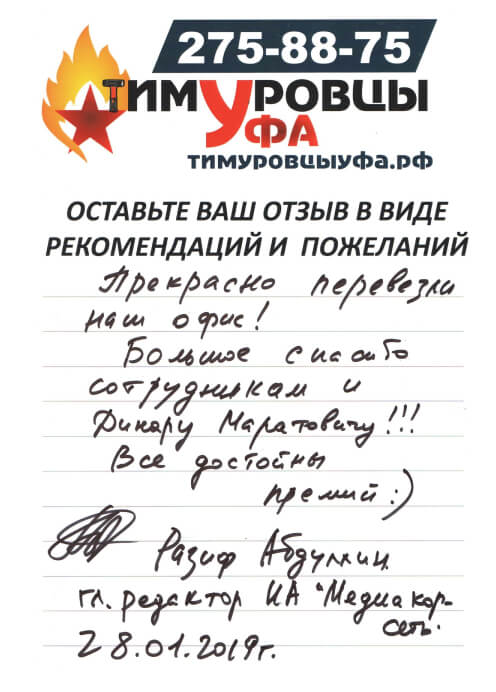 275-88-75
ТИМУРОВЦЫ
УФА
ТИМУРОВЦЫУФА.РФ
ОСТАВЬТЕ ВАШ ОТЗЫВ В ВИДЕ
РЕКОМЕНДАЦИЙ И ПОЖЕЛАНИЙ
Прекрасно перевезли
наш офис!
Большое спасибо
сотрудникам и
Динару Маратовичу!!!
Все достойны
премий :)
Разиф Абдуллин
гл. редактор ИА "Медиакор-
сеть.
28.01.2019г.